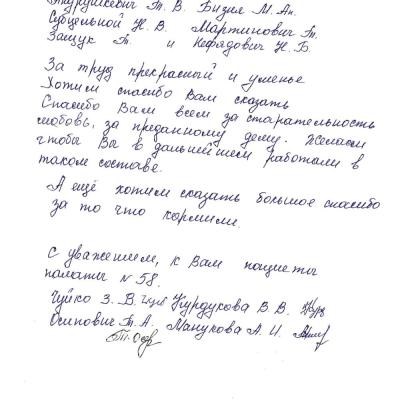 Т. В. Бизня М. Ан.
Субцельной Н. В. Мартинович Т.
Защук Т. и Кефядович Н. Б.
За труд прекрасный и уменье
Хотим спасибо Вам сказать
Спасибо Вам всем за старательность
любовь, за преданному делу. Желаем
чтобы Вы в дальнейшем работали в
таком составе.
А ещё хотим сказать большое спасибо
за то что кормили.
С уважением, к Вам пациенты
палаты № 58.
Чуйко З. В. Курдукова В. В.
Осипович Т. А. Манукова А. И.